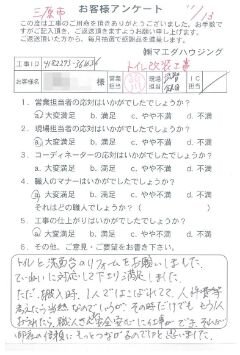 三原市
お客様アンケート
この度は工事のご用命を頂きありがとうございました。お手数で
すがご記入頂き、ご返送頂きますようお願い申し上げます。
ご返送頂いた方から、毎月抽選で粗品を進呈します。
㈱マエダハウジング
工事ID
お客様名
営業担当
現場担当
IC担当
トイレ改装工事
1．営業担当者の応対はいかがでしたでしょうか？
a.大変満足 b.満足 c.普通 d.不満 e.大変不満
2．現場担当者の応対はいかがでしたでしょうか？
a.大変満足 b.満足 c.普通 d.不満 e.大変不満
3．コーディネーターの応対はいかがでしたでしょうか？
a.大変満足 b.満足 c.普通 d.不満 e.大変不満
4．職人のマナーはいかがでしたでしょうか？
a.大変満足 b.満足 c.普通 d.不満 e.大変不満
それはどの職人でしょうか？（　　　）
5．工事の仕上がりはいかがでしたでしょうか？
a.大変満足 b.満足 c.普通 d.不満 e.大変不満
6．その他、ご意見・ご要望をお書き下さい。
トイレと洗面台のリフォームをお願いしました。
ていねいに対応して下さり満足しました。
ただ、搬入時、1人ではこばれてて、人件費等
考えたら当然なのでしょうが、その時だけでももう1人
おられたら、職人さんも安全安心に仕事ができ、それが